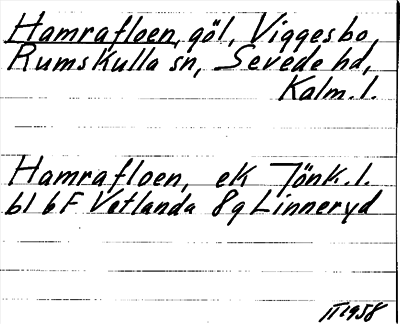 Hamrafloen, göl, Viggesbo,
Rumskulla sn, Sevede hd,
Kalm. l.
Hamrafloen, ek Jönk. l.
bl 6F Vetlanda 8g Linneryd
II 1958